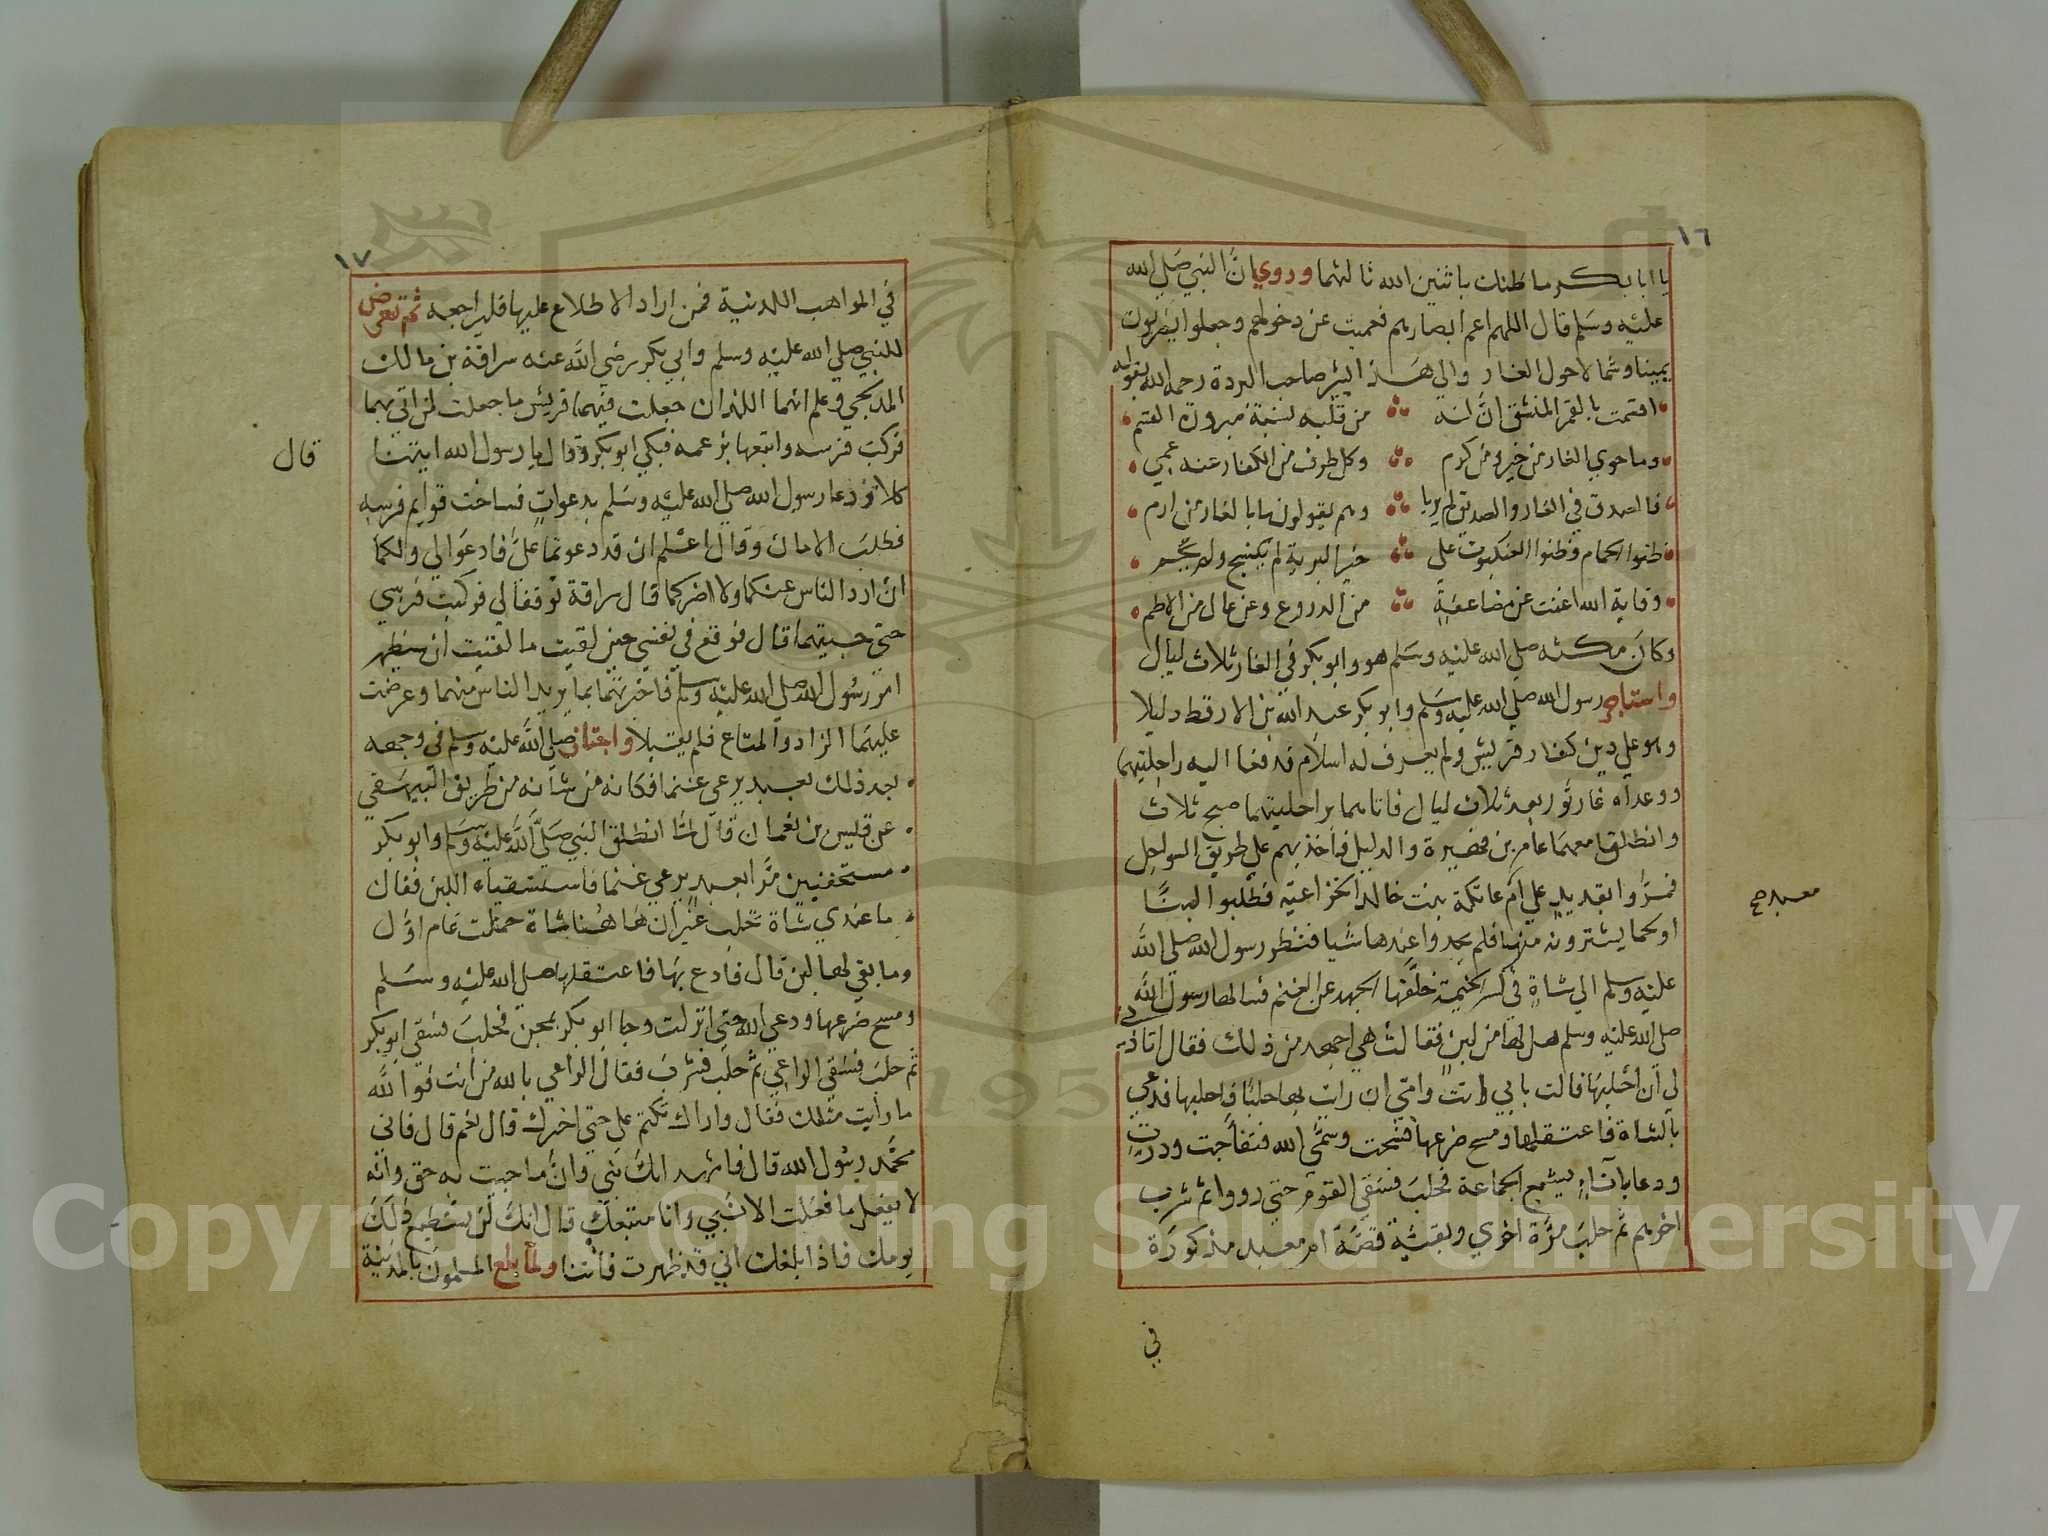 ١٦
يا ابا بكر ما ظنك باثنين الله ثالثهما وروي انَّ النبي صلى الله
عليه وسلم قال اللهم اعم ابصارهم فعميت عن دخولهم وجعلوا يضربون
يمينا وشمالا حول الغار والي هذا يشير صاحب البردة رحمه الله بقوله
اقسمت بالقمر المنشق انَّ له من قلبه نسبة مبرورة القسم
وما حوي الغار من خير ومن كرم وكل طرف من الكفار عنه عمي
فالصدق في الغار والصديق لم يريا وهم يقولون ما بالغار من ارم
ظنوا الحمام وظنوا العنكبوت على خير البرية لم تنسج ولم تحم
وقاية الله اغنت عن مضاعفةٍ من الدروع وعن عال من الاطم
وكان مكثه صلى الله عليه وسلم هو وابو بكر في الغار ثلاث ليال
واستاجر رسول الله صلى الله عليه وسلم وابو بكر عبد الله بن الارقط دليلا
وهو علي دين كفار قريش ولم يعرف له اسلام فدفعا اليه راحلتيهما
ووعداه غار ثور بعد ثلاث ليال فاتاهما براحلتيهما صبح ثلاث
وانطلق معهما عامر بن فهيرة والدليل فاخذ بهم علي طريق السواحل
فمرُّوا بقديدٍ علي امّ عاتكة بنت خالد الخزاعية فطلبوا لبنًا
معبد صح
او لحما يشترونه منها فلم يجدوا عندها شيا فنظر رسول الله صلى الله
عليه وسلم الي شاةٍ في كسر الخيمة خلَّفها الجهد عن الغنم فسالها رسول الله
صلى الله عليه وسلم هل لها من لبن فقالت هي اجهد من ذلك فقال اتاذني
لي ان احلبها قالت بابي انت وامّي ان رايت بها حلبًا فاحلبها فدعي
بالشاة فاعتقلها ومسح ضرعها وسمَّي الله فتفاجت ودرت
ودعا باناءٍ يشبع الجماعة فحلب فسقي القوم حتي رووا ثم شرب
اخرهم ثم حلب مرَّة اخري وبقيّة قصّة ام معبد مذكورة
في
١٧
في المواهب اللدنية فمن اراد الاطلاع عليها فليراجعه ثم تعرض
للنبي صلى الله عليه وسلم وابي بكر رضي الله عنه سراقة بن مالك
المدلجي وعلم انهما اللذان جعلت فيهما قريش ما جعلت لمن اتي بهما
فركب فرسه واتبعها بزعمه فبكي ابو بكر وقال يا رسول الله اتينا
قال
كلا ودعا رسول الله صلى الله عليه وسلم بدعواتٍ فساخت قوايم فرسه
فطلب الامان وقال اعلم ان قد دعوتما عليَّ فادعوا لي ولكما
ان ارد الناس عنكما ولا اضركما قال سراقة فوقفا لي فركبت فرسي
حتي جيتهما قال فوقع في نفسي حين لقيت ما لقيت ان سيظهر
امر رسول الله صلى الله عليه وسلم فاخبرتهما بما يريد الناس منهما وعرضت
عليهما الزاد والمتاع فلم يقبلا واجتاز صلى الله عليه وسلم في وجهه
بعد ذلك بعبد يرعي غنما فكان من شانه من طريق البيهقي
عن قيس بن نعمان قال لمّا انطلق النبي صلى الله عليه وسلم وابو بكر
مستخفيين مرَّا بعبد يرعي غنما فاستسقياه اللبن فقال
ما عندي شاة تحلب غير ان هاهنا شاة حملت عام اوّل
وما بقي لها لبن قال فادع بها فاعتقلها صلى الله عليه وسلم
ومسح ضرعها ودعي الله حتي انزلت وجا ابو بكر بمجن فحلب فسقي ابو بكر
ثم حلب فسقي الراعي ثم حلب فشرب فقال الراعي بالله من انت فوالله
ما رايت مثلك فقال واراك تكتم علي حتي اخبرك قال نعم قال فاني
محمَّد رسول الله قال فاشهد انك نبي وانَّ ما جيت به حق وانه
لا يفعل ما فعلت الا نبي وانا متبعك قال انك لن تستطيع ذلك
يومك فاذا بلغك اني قد ظهرت فاتنا ولما بلغ المسلمون بالمدينة
Copyright © King Saud University
195